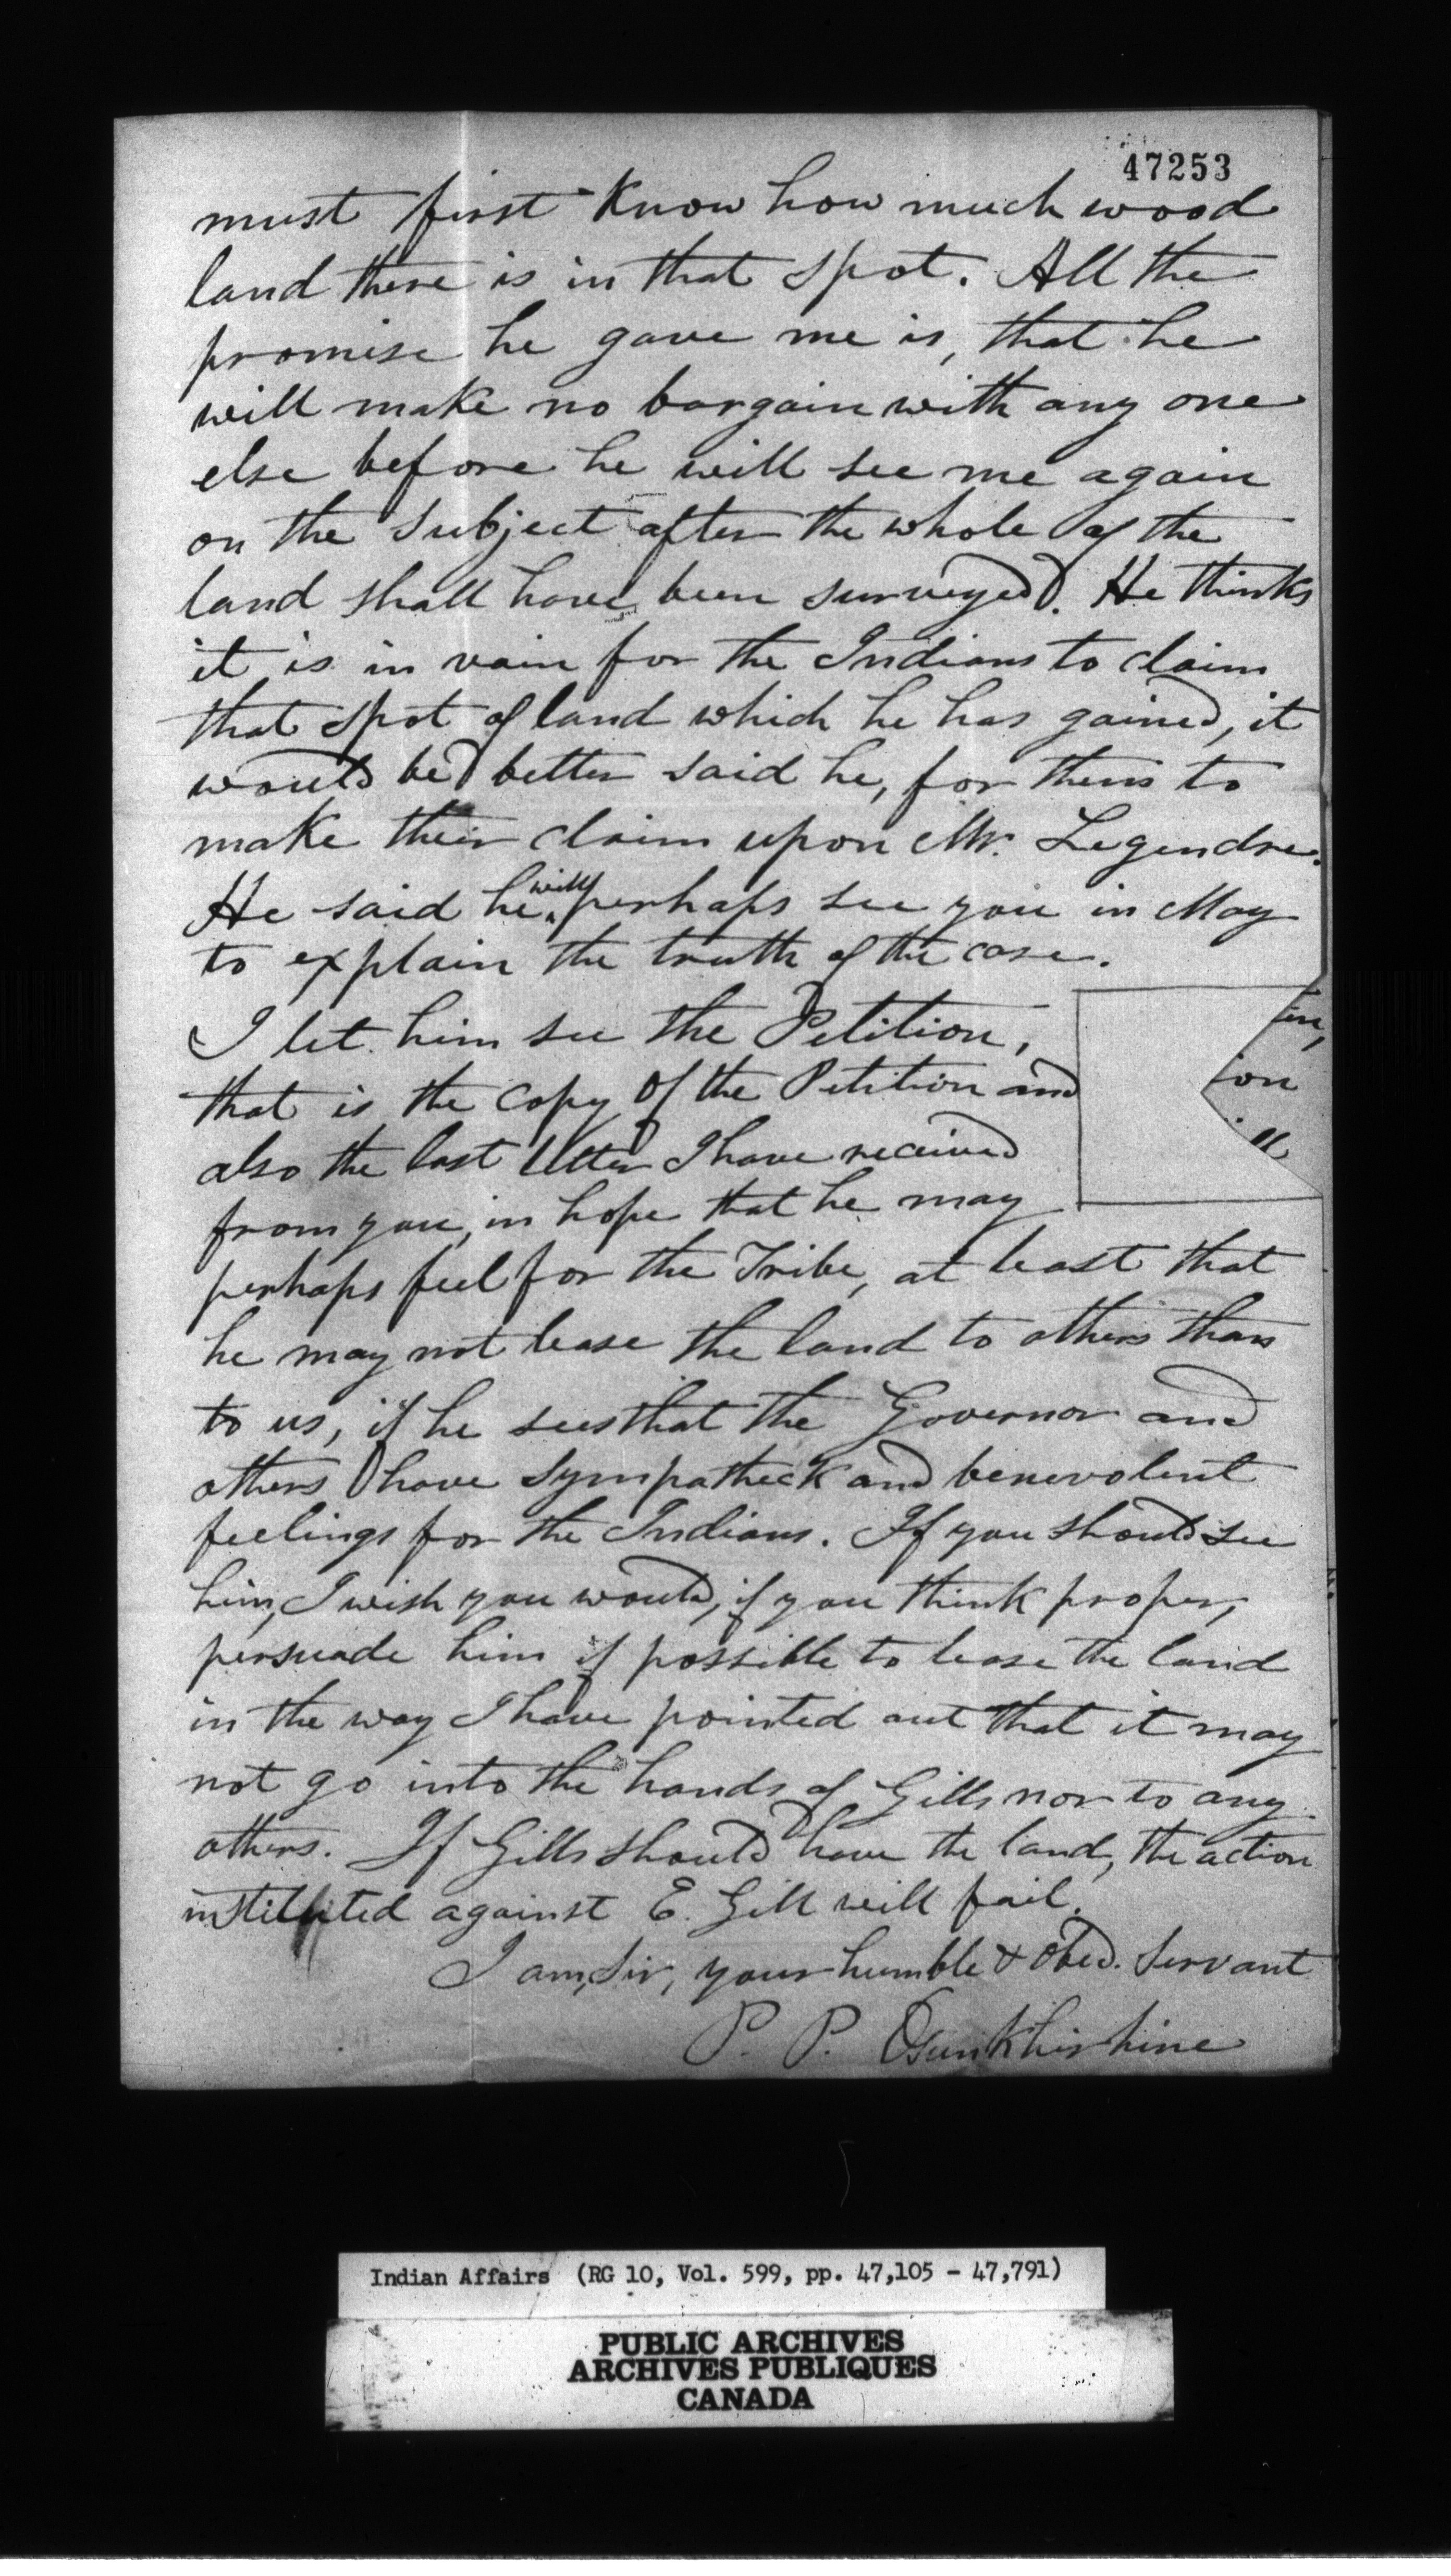 47253
must first Know how much wood
land there is in that spot. All the
promise he gave me is, that he
will make no bargain with any one
else before he will see me again
on the subject after the whole of the
land shall have been surveyed. He thinks
it is in vain for the Indians to claim
that spot of land which he has gained, it
would be better said he, for them to
make their claim upon Mr. Legendre.
He said he will perhaps see you in May
to explain the truth of the case.
I let him see the Petition,
that is the copy of the Petition and
also the last letter I have received
from you, in hope that he may
perhaps feel for the Tribe, at least that
he may not lease the land to others than
to us, if he sees that the Governor and
others have sympatheck and benevolent
feelings for the Indians. If you should see
him, I wish you would, if you think proper,
persuade him if possible to lease the land
in the way I have pointed out that it may
not go into the hands of Gills nor to any
others. If Gills should have the land, the action
instituted against E. Gill will fail.
I am, Sir, your humble & obed. Servant
P. P. Osunkhirhine
Indian Affairs (RG 10, Vol. 599, pp. 47,105 - 47,791)
PUBLIC ARCHIVES
ARCHIVES PUBLIQUES
CANADA